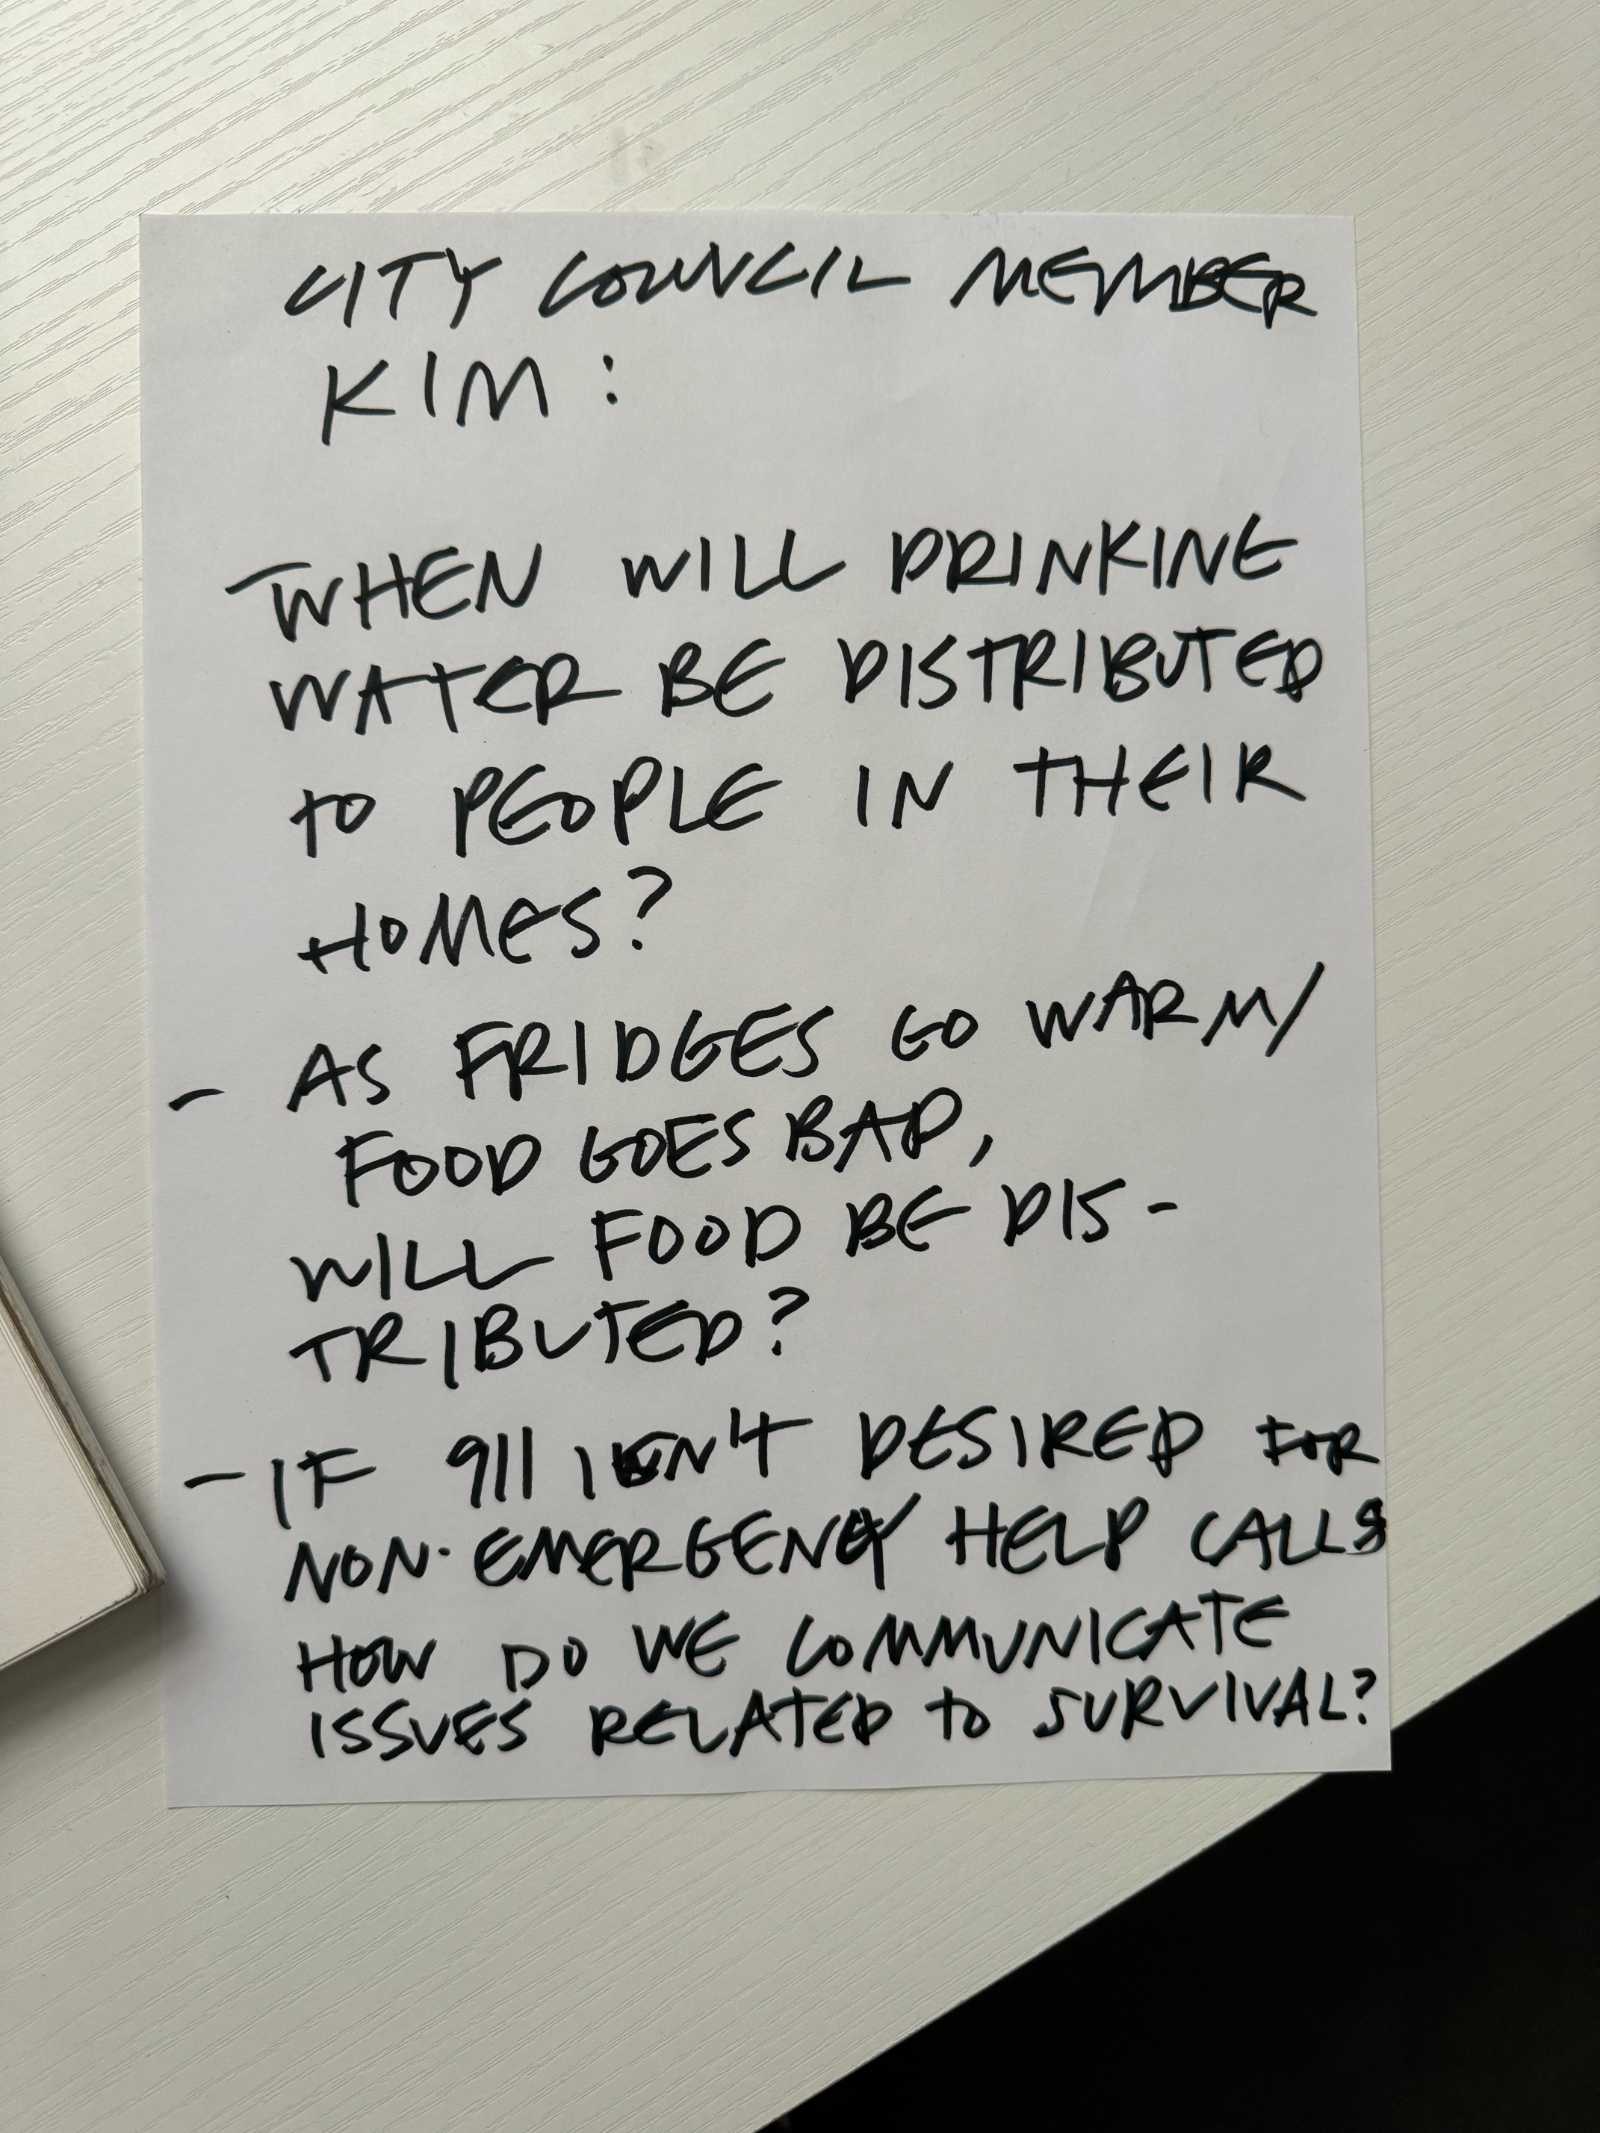 CITY COUNCIL MEMBER
KIM:
- WHEN WILL DRINKING
WATER BE DISTRIBUTED
TO PEOPLE IN THEIR
HOMES?
- AS FRIDGES GO WARM/
FOOD GOES BAD,
WILL FOOD BE DIS-
TRIBUTED?
- IF 911 ISN'T DESIRED FOR
NON-EMERGENCY HELP CALLS
HOW DO WE COMMUNICATE
ISSUES RELATED TO SURVIVAL?